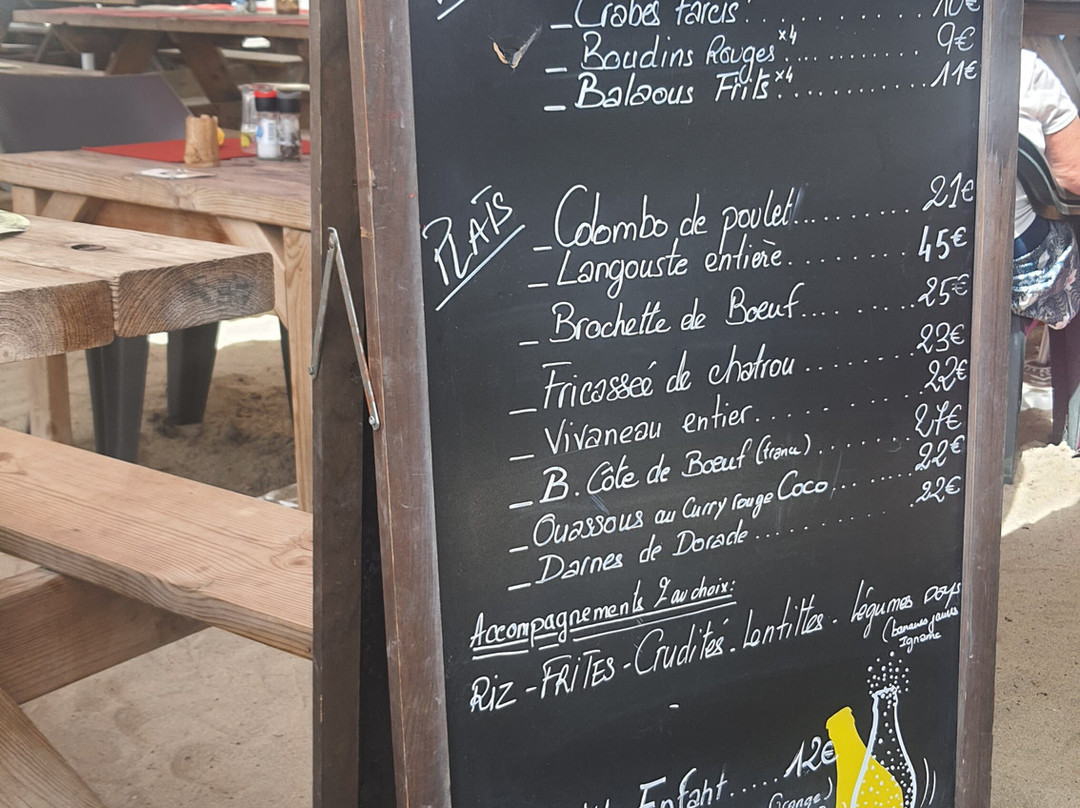 _ Crabes farcis ........ 10€
_ Boudins Rouges x4 ........ 9€
_ Balaous Frits x4 ........ 11€
PLATS
_ Colombo de poulet ........ 21€
_ Langouste entière ........ 45€
_ Brochette de Boeuf ........ 25€
_ Fricasseé de chatrou ........ 23€
_ Vivaneau entier ........ 22€
_ B. Côte de Boeuf (France) ........ 27€
_ Ouassous au Curry rouge Coco ........ 22€
_ Darnes de Dorade ........ 22€
Accompagnements 2 au choix:
RIZ - FRITES - Crudités - Lentilles - légumes pays
(bananes jaunes
Igname
12€
Enfant .....